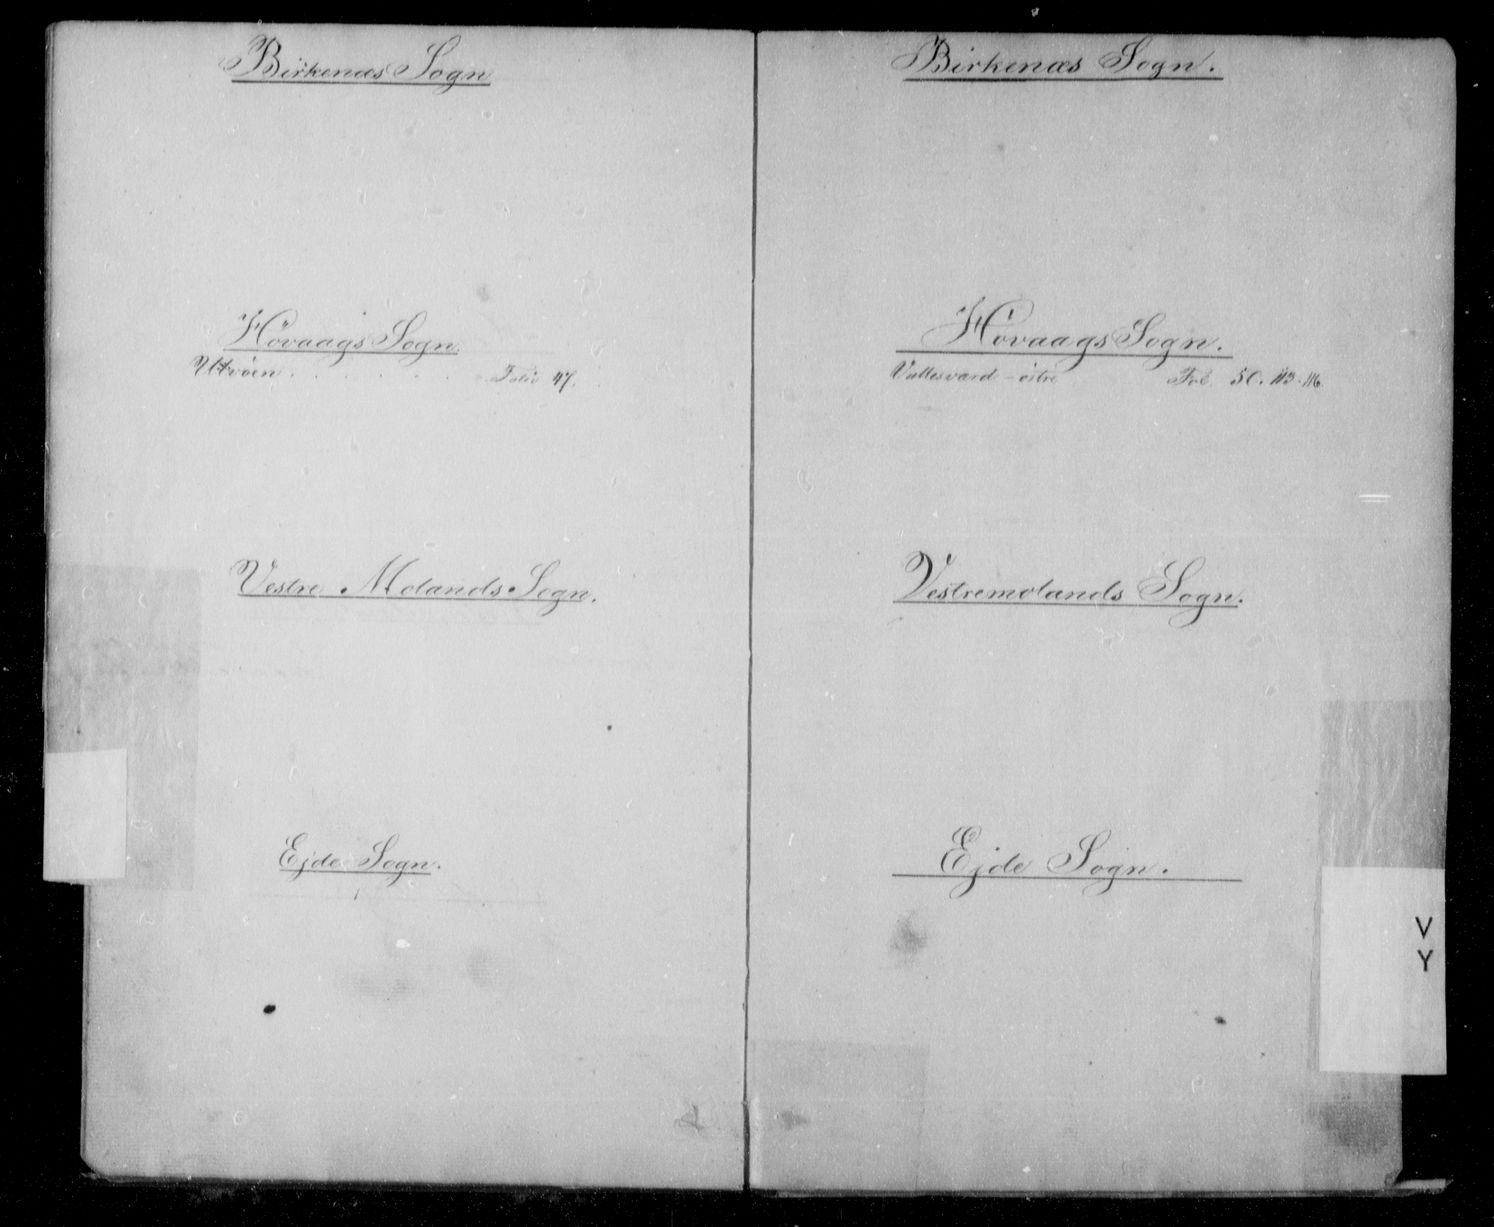 Birkenæs Sogn
Hövaags Sogn.
Utvöen . . . . . . Folio 47.
Vestre Molands Sogn.
Ejde Sogn.
Birkenæs Sogn.
Hövaags Sogn.
Vallesværd - östre Fol. 50. 113. 116.
Vestremolands Sogn.
Ejde Sogn.
V
Y